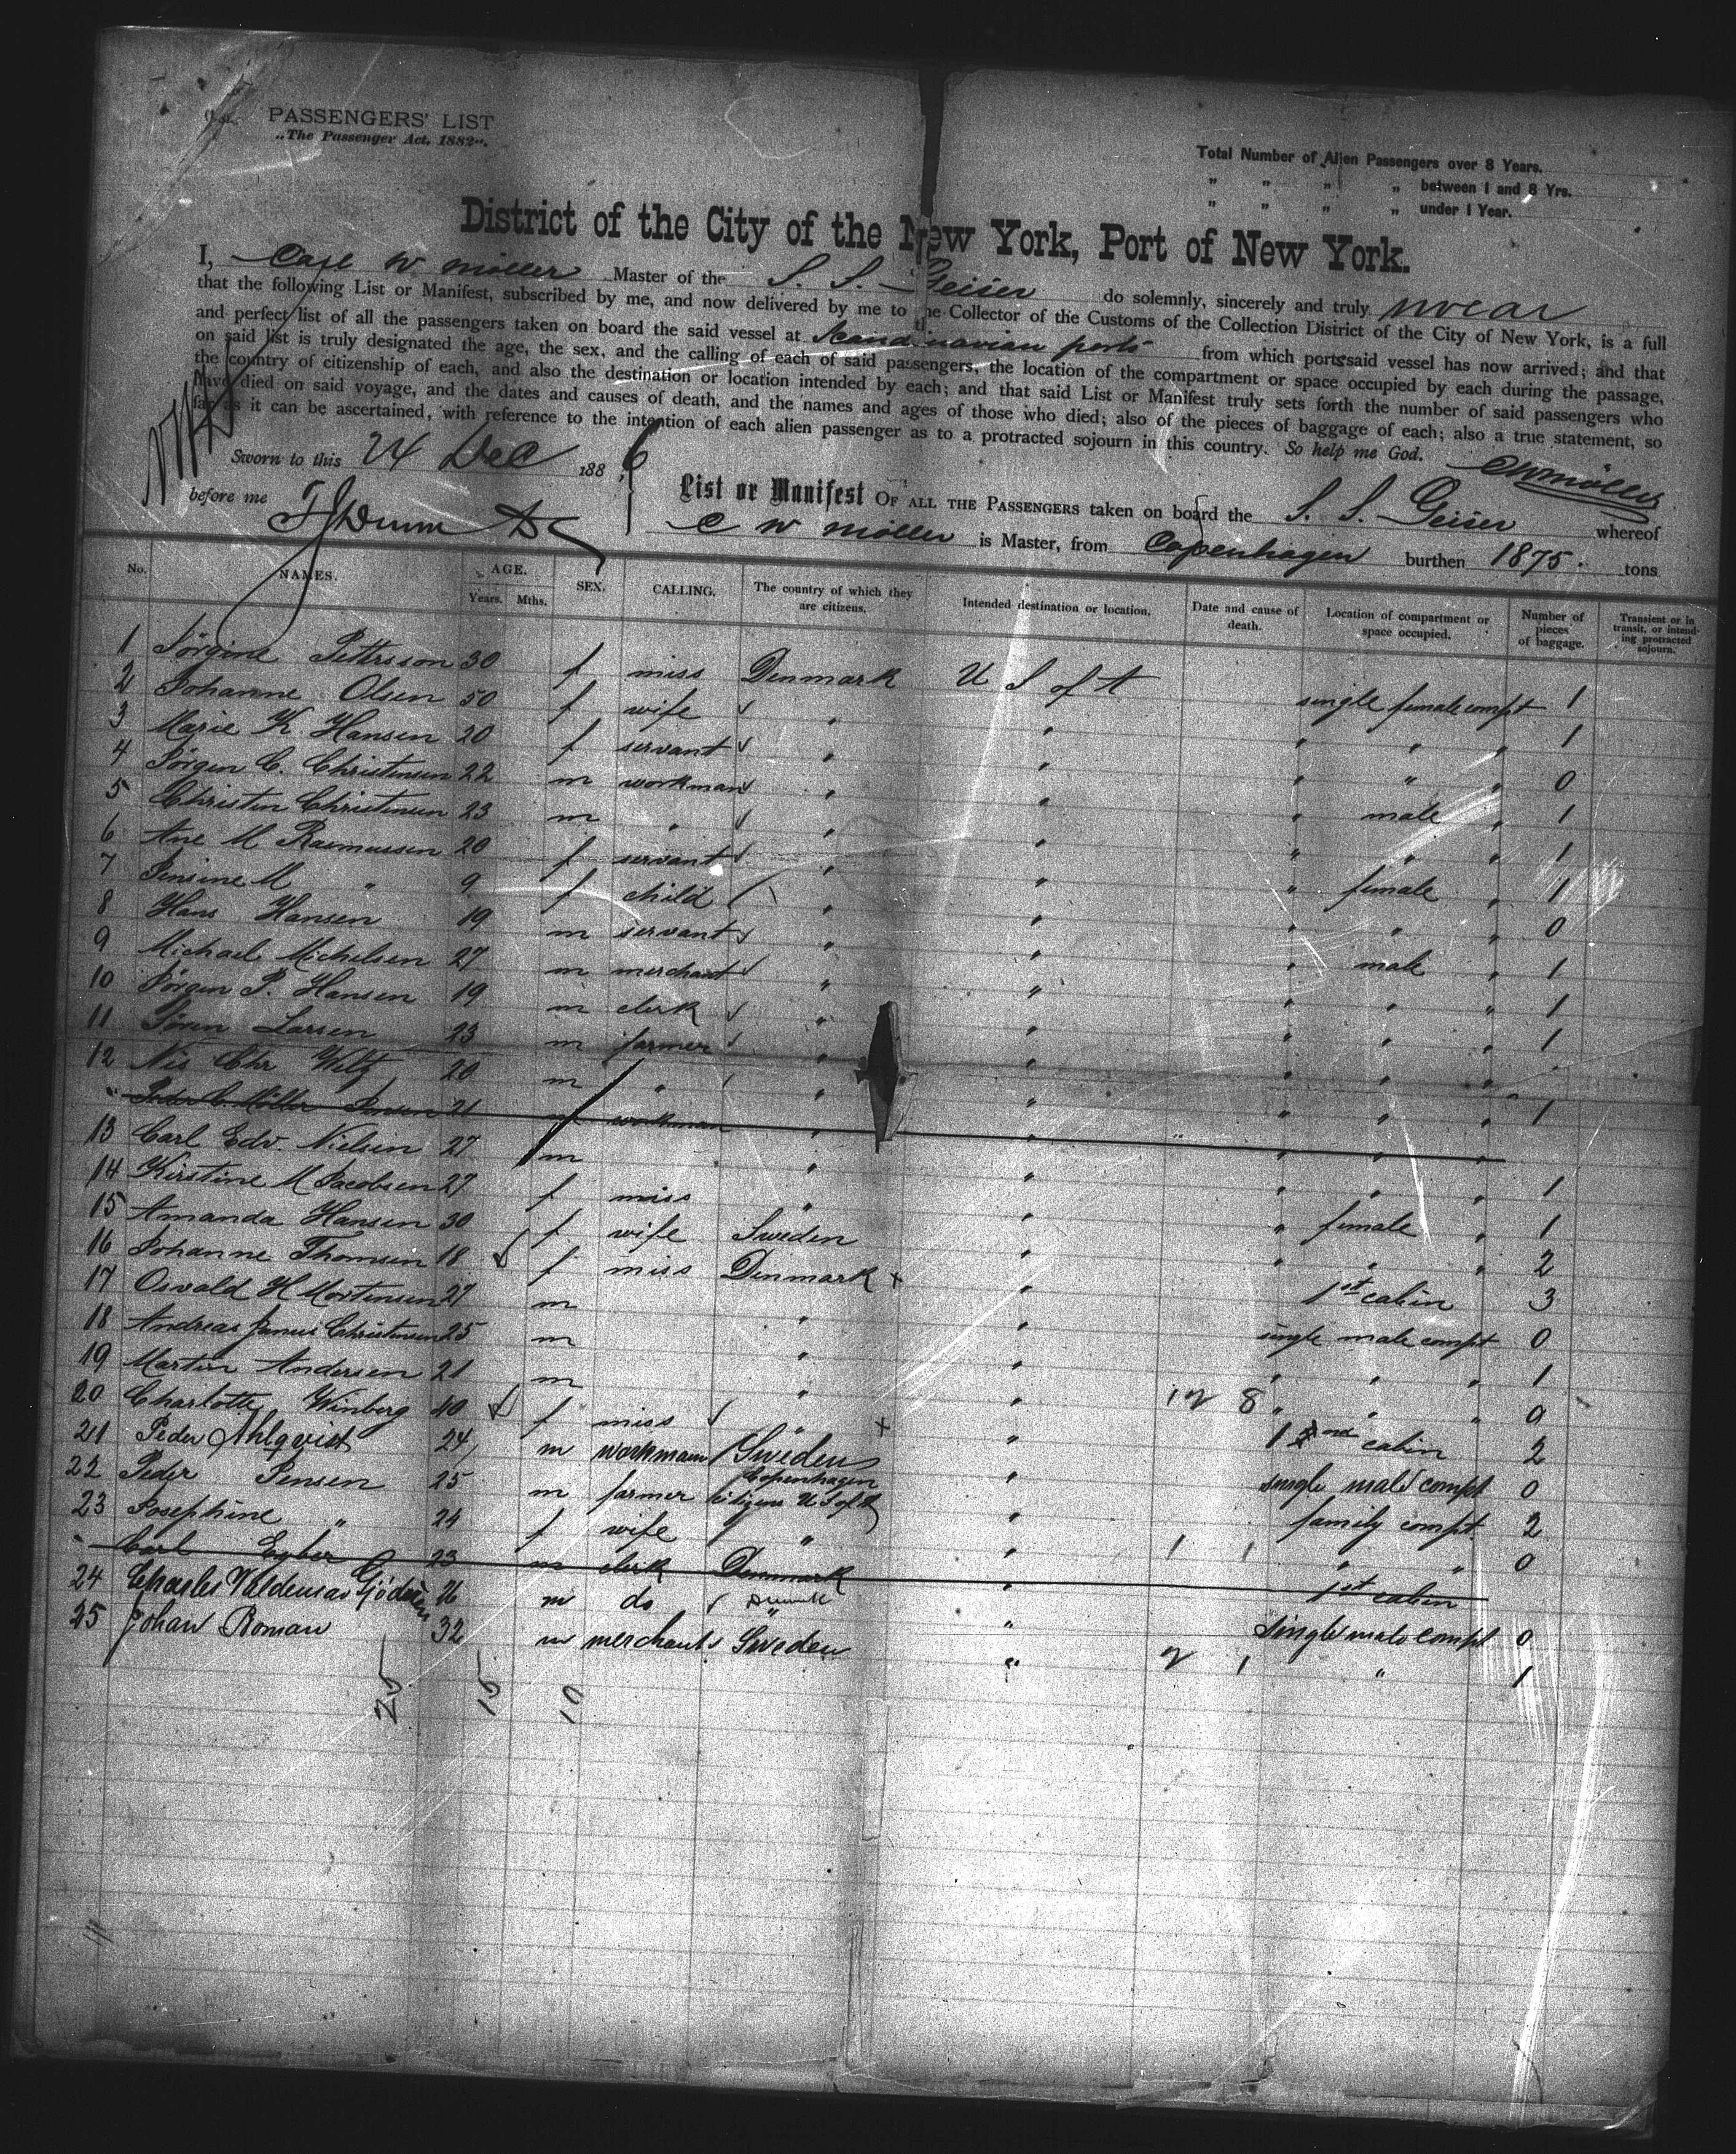 PASSENGERS' LIST
„The Passenger Act, 1882“.
Total Number of Alien Passengers over 8 Years.
" " " „ between 1 and 8 Yrs.
" " " „ under 1 Year.
District of the City of the New York, Port of New York.
I, Carl W Möller Master of the S. S. Geiser do solemnly, sincerely and truly swear
that the following List or Manifest, subscribed by me, and now delivered by me to the Collector of the Customs of the Collection District of the City of New York, is a full
and perfect list of all the passengers taken on board the said vessel at Scandinavian ports from which ports said vessel has now arrived; and that
on said list is truly designated the age, the sex, and the calling of each of said passengers, the location of the compartment or space occupied by each during the passage,
the country of citizenship of each, and also the destination or location intended by each; and that said List or Manifest truly sets forth the number of said passengers who
have died on said voyage, and the dates and causes of death, and the names and ages of those who died; also of the pieces of baggage of each; also a true statement, so
far as it can be ascertained, with reference to the intention of each alien passenger as to a protracted sojourn in this country. So help me God.
CWMöller
Sworn to this 24 Dec 1886
before me
List or Manifest OF ALL THE PASSENGERS taken on board the S. S. Geiser whereof
C W Möller is Master, from Copenhagen burthen 1875. tons
No. NAMES. AGE. Years. Mths. SEX. CALLING. The country of which they are citizens. Intended destination or location. Date and cause of death. Location of compartment or space occupied. Number of pieces of baggage. Transient or in transit, or intending protracted sojourn.
1 Jörgine Pettersson 30 f miss Denmark U S of A single female compt 1
2 Johanne Olsen 50 f wife " " " " " 1
3 Marie K Hansen 20 f servant " " " " " 0
4 Jörgen C. Christensen 22 m workman " " " male " 1
5 Christen Christensen 23 m " " " " " " 1
6 Ane M Rasmussen 20 f servant " " " female " 1
7 Jensine M " 9 f child " " " " " 0
8 Hans Hansen 19 m servant " " " male " 1
9 Michael Michelsen 27 m merchant " " " " " 1
10 Jörgen P. Hansen 19 m clerk " " " " " 1
11 Sören Larsen 23 m farmer " " " " "
12 Nis Chr Weltz 20 m " " " " " " 1
" Peder C. Möller Jensen 21 m workman " " " " "
13 Carl Edv. Nielsen 27 m " " " " " 1
14 Kirstine M Jacobsen 27 f miss " " " female " 1
15 Amanda Hansen 30 f wife Sweden " " " " 2
16 Johanne Thomsen 18 f miss Denmark " 1st cabin 3
17 Oswald H Mortensen 27 m " " single male compt 0
18 Andreas Janus Christensen 25 m " " " " " 1
19 Martin Andersen 21 m " " 12 8 " " " 0
20 Charlotte Winberg 40 f miss " " 1 cabin 2
21 Peder Ahlqvist 24 m workman Sweden " single male compt 0
22 Peder Jensen 25 m farmer Copenhagen citizens U S of A " family compt. 2
23 Josephine " 24 f wife " " 1 1 " " 0
" Carl Egber 23 m clerk Denmark " 1st cabin
24 Charles Valdemar 26 m do " " single male compt 0
25 Johan Roman 32 m merchant Sweden " 2 1 " 1
25 15 10